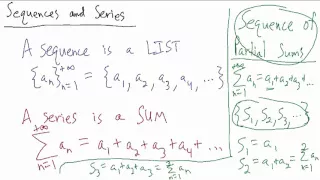 Sequences and Series
A sequence is a LIST
{aₙ}ₙ₌₁^{+∞} = {a₁, a₂, a₃, a₄, ...}
A series is a SUM
∑ₙ₌₁^{+∞} aₙ = a₁ + a₂ + a₃ + a₄ + ...
S₃ = a₁ + a₂ + a₃ = ∑ₙ₌₁³ aₙ
Sequence of
Partial Sums
∑ₙ₌₁^{+∞} aₙ = a₁ + a₂ + a₃ + ...
{S₁, S₂, S₃, ...}
S₁ = a₁
S₂ = a₁ + a₂ = ∑ₙ₌₁² aₙ